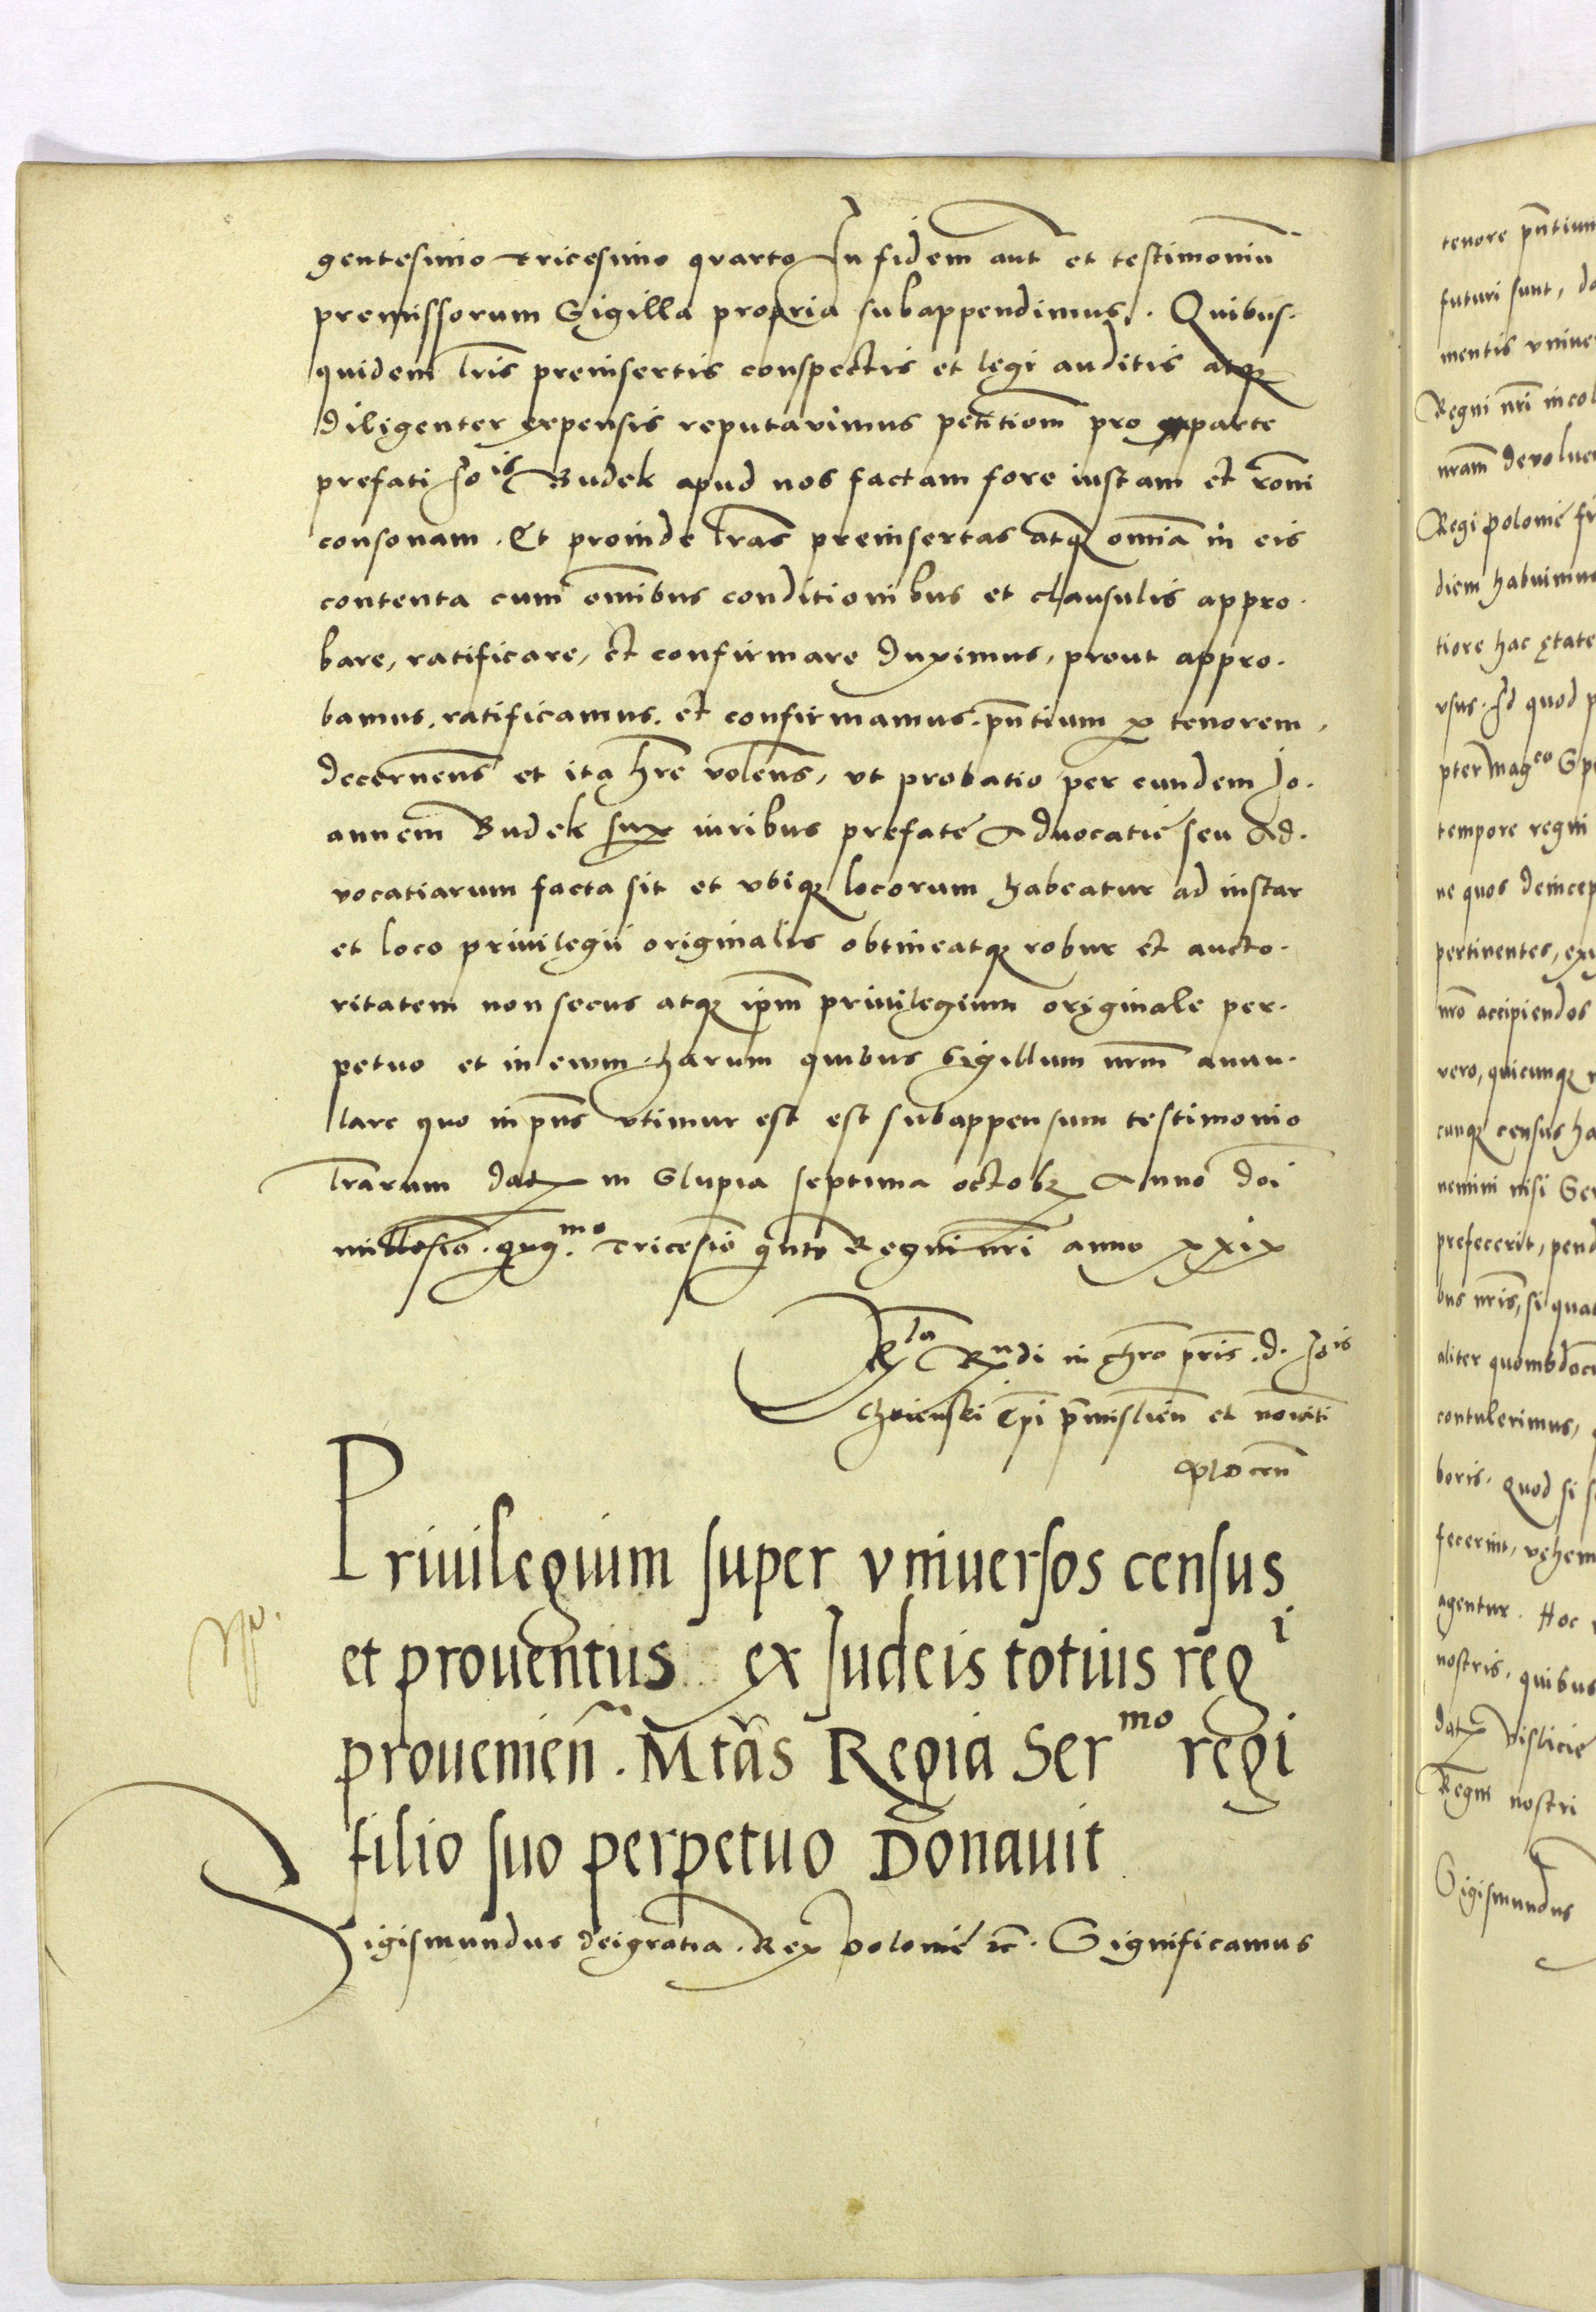 gentesimo tricesimo quarto In fidem aut̃ et testimoniũ
premissorum Sigilla propria subappendimus. Quibus.
quidem Lr̃is preinsertis conspectis et legi auditis atq̃
diligenter expensis reputavimus petitiõm pro parte
prefati Jo^is Budek apud nos factam fore iustam et rõni
consonam. Et proinde Lr̃as preinsertas atq̃ om̃ia in eis
contenta cum om̃ibus conditionibus et clausulis appro.
bare, ratificare, et confirmare duximus, prout appro.
bamus, ratificamus. et confirmamus. pñtium p tenorem,
decernens̃ et ita hr̃e volens̃, ut probatio per eundem Jo.
annem Budek sup iuribus prefatę Advocatię seu Ad.
vocatiarum facta sit et ubiq̃ locorum habeatur ad instar
et loco privilegii originalis obtineatq̃ robur et aucto.
ritatem non secus atq̃ ip̃m privilegium originale per.
petuo et in evum harum quibus Sigillum nr̃m annu.
lare quo in pñs utimur est est subappensum testimonio
Lr̃arum dat in Slupia septima octobr̃ Anno dñi
millesiõ. quig.^mo Tricesiõ quito Regni nr̃i anno xxix
R^la R^ndi in chr̃o pr̃is. d. Jo^is
Choienski Ep̃i p̃mislien̄ et nominati
plocen̄
Privilegium super vniuersos census
et prouentus ex Judeis totius reg^i
prouenien̄. Mtãs Regia Ser^mo regi
filio suo perpetuo Donauit
Sigismundus dei gratia. Rex Polonię ꝛc̃. Significamus
tenore pñtium
futuri sunt,
mentis
Regni nr̃i
nram̃
Regi polonię
diem habuimus
tiore hac ętate
usus. Id quod
pter̃ Mag^co
tempore regni
ne quos
pertinentes,
nr̃o accipiendos
vero, quicunq̃
cunq̃ census
nemini nisi
prefecerit,
bus nr̃is, si
aliter
contulerimus,
boris. Quod si
fecerint,
agentur. Hoc
nostris. quibus
dat Vislicię
Regni nostri
Sigismundus